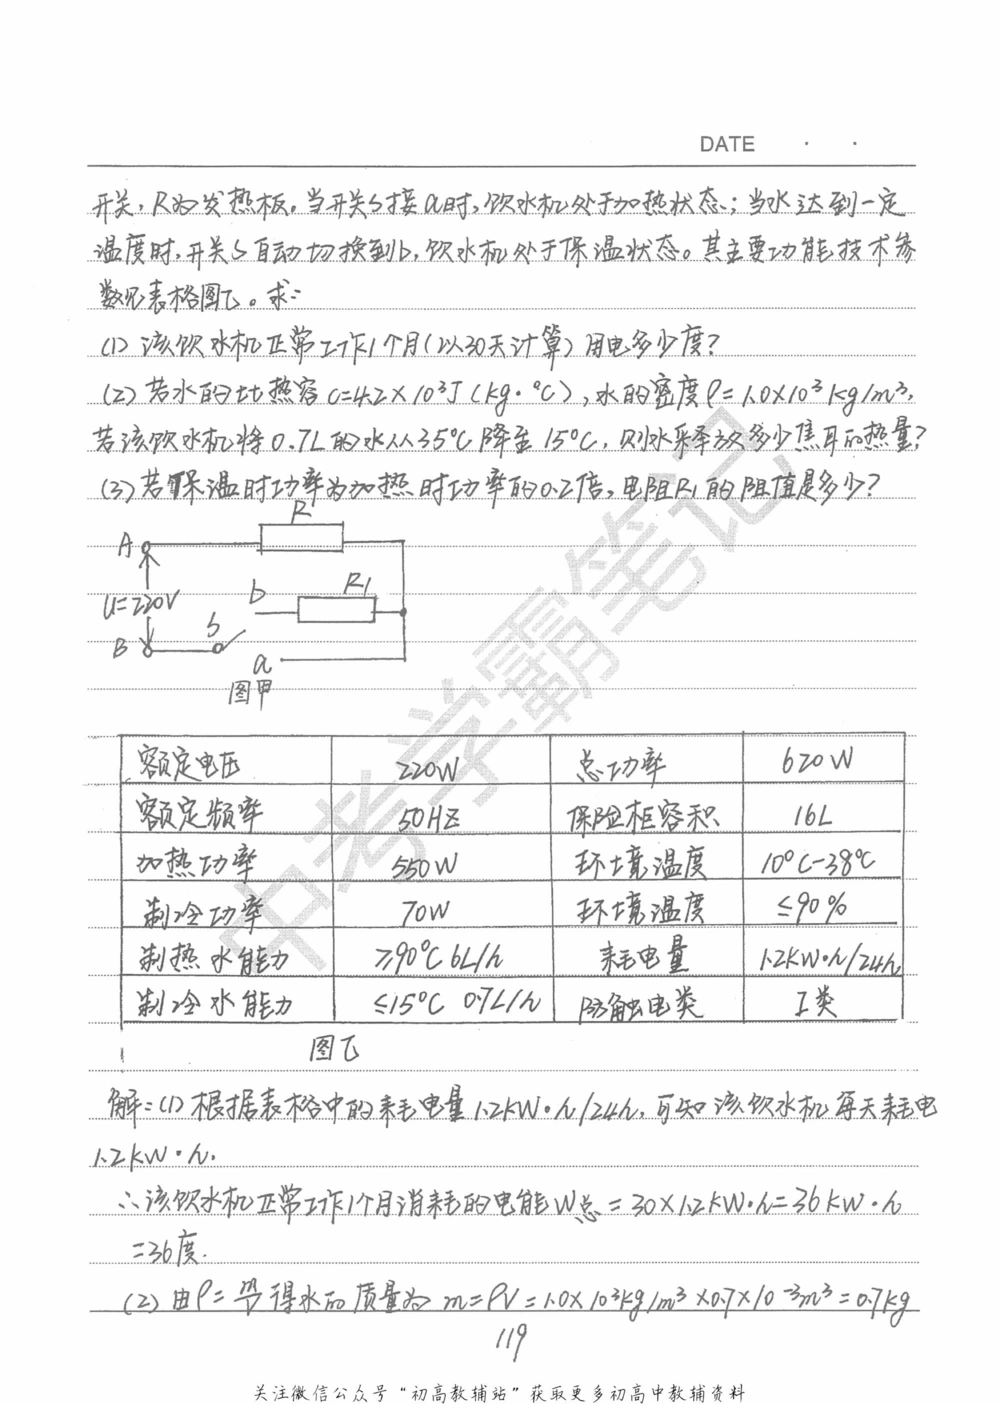 DATE · ·
开关,R为发热板。当开关S接a时,饮水机处于加热状态;当水达到一定
温度时,开关S自动切换到b,饮水机处于保温状态。其主要功能技术参
数见表格图乙。求:
(1)该饮水机正常工作1个月(以30天计算)用电多少度?
(2)若水的比热容C=4.2×10³J(kg·℃),水的密度ρ=1.0×10³kg/m³,
若该饮水机将0.7L的水从35℃降至15℃,则水释放多少焦耳的热量?
(3)若保温时功率为加热时功率的0.2倍,电阻R1的阻值是多少?
R
A
U=220V
b R1
B S
a
图甲
额定电压 220W 总功率 620W
额定频率 50HZ 保险柜容积 16L
加热功率 550W 环境温度 10℃-38℃
制冷功率 70W 环境温度 ≤90%
制热水能力 ≥90℃ 6L/h 耗电量 1.2KW·h/24h
制冷水能力 ≤15℃ 0.7L/h 防触电类 I类
图乙
解:(1)根据表格中的耗电量1.2KW·h/24h,可知该饮水机每天耗电
1.2KW·h.
∴该饮水机正常工作1个月消耗的电能W总=30×1.2KW·h=36KW·h
=36度.
(2)由ρ=m/V得水的质量为m=ρV=1.0×10³kg/m³×0.7×10⁻³m³=0.7kg
119
关注微信公众号“初高教辅站”获取更多初高中教辅资料
中考学霸笔记